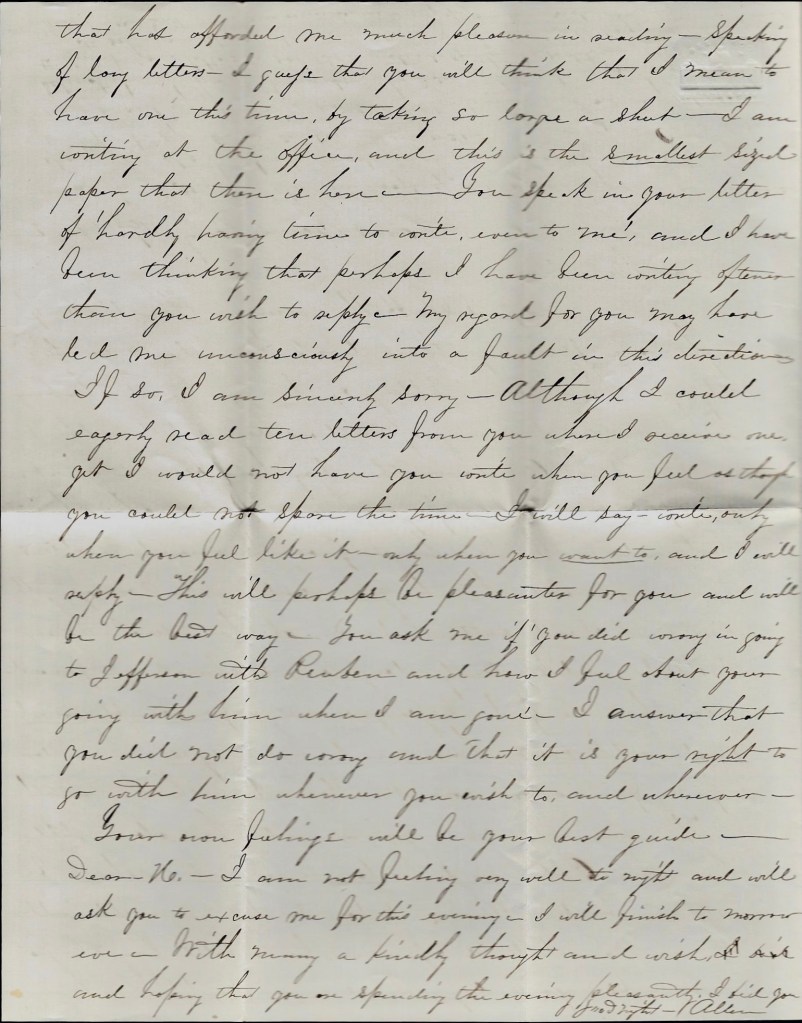 that has afforded me much pleasure in reading — Speaking
of long letters — I guess that you will think that I mean to
have one this time, by taking so large a sheet — I am
writing at the office, and this is the smallest sized
paper that there is here — You speak in your letter
of 'hardly having time to write, even to me', and I have
been thinking that perhaps I have been writing oftener
than you wish to reply — My regard for you may have
led me unconsciously into a fault in this direction
If so, I am sincerely sorry — Although I could
eagerly read ten letters from you where I receive one,
yet I would not have you write when you feel as tho'
you could not spare the time — I will say — write, only
when you feel like it — only when you want to, and I will
reply — This will perhaps be pleasanter for you and will
be the best way — You ask me if 'you did wrong in going
to Jefferson with Reuben and how I feel about your
going with him when I am gone' — I answer that
you did not do wrong and that it is your right to
go with him whenever you wish to, and wherever —
Your own feelings will be your best guide —
Dear — N. — I am not feeling very well to night and will
ask you to excuse me for this evening — I will finish to morrow
eve — With many a kindly thought and wish,
and hoping that you are spending the evening pleasantly, I bid you
good night — Allen